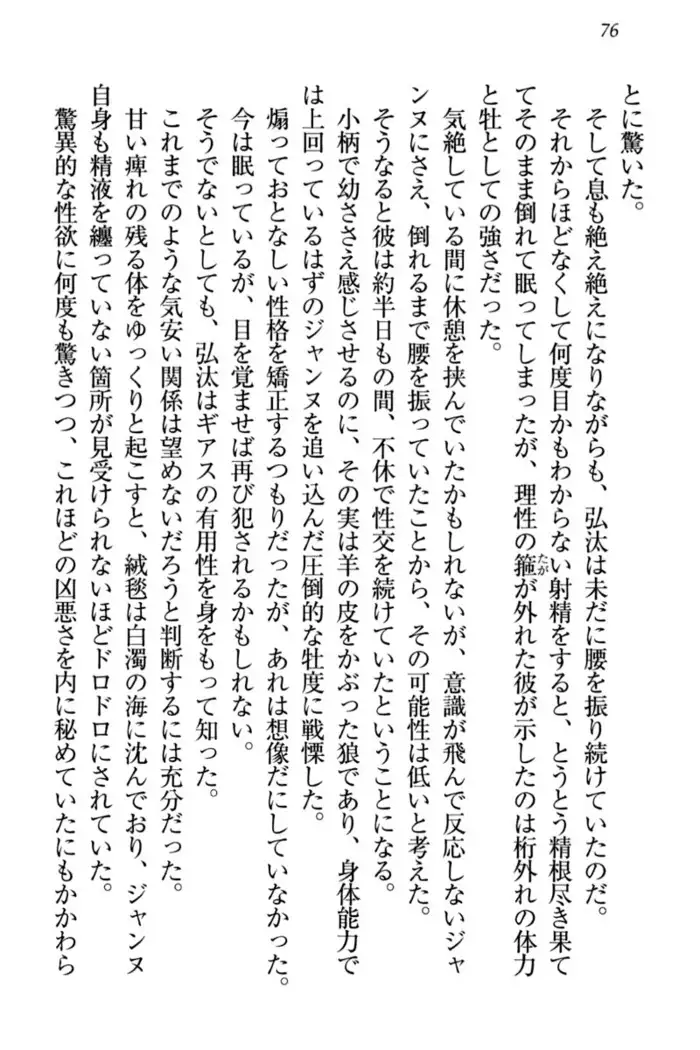 76
とに驚いた。
そして息も絶え絶えになりながらも、弘汰は未だに腰を振り続けていたのだ。
それからほどなくして何度目かもわからない射精をすると、とうとう精根尽き果て
てそのまま倒れて眠ってしまったが、理性の箍たがが外れた彼が示したのは桁外れの体力
と牡としての強さだった。
気絶している間に休憩を挟んでいたかもしれないが、意識が飛んで反応しないジャ
ンヌにさえ、倒れるまで腰を振っていたことから、その可能性は低いと考えた。
そうなると彼は約半日もの間、不休で性交を続けていたということになる。
小柄で幼ささえ感じさせるのに、その実は羊の皮をかぶった狼であり、身体能力で
は上回っているはずのジャンヌを追い込んだ圧倒的な牡度に戦慄した。
煽っておとなしい性格を矯正するつもりだったが、あれは想像だにしていなかった。
今は眠っているが、目を覚ませば再び犯されるかもしれない。
そうでないとしても、弘汰はギアスの有用性を身をもって知った。
これまでのような気安い関係は望めないだろうと判断するには充分だった。
甘い痺れの残る体をゆっくりと起こすと、絨毯は白濁の海に沈んでおり、ジャンヌ
自身も精液を纏っていない箇所が見受けられないほどドロドロにされていた。
驚異的な性欲に何度も驚きつつ、これほどの凶悪さを内に秘めていたにもかかわら